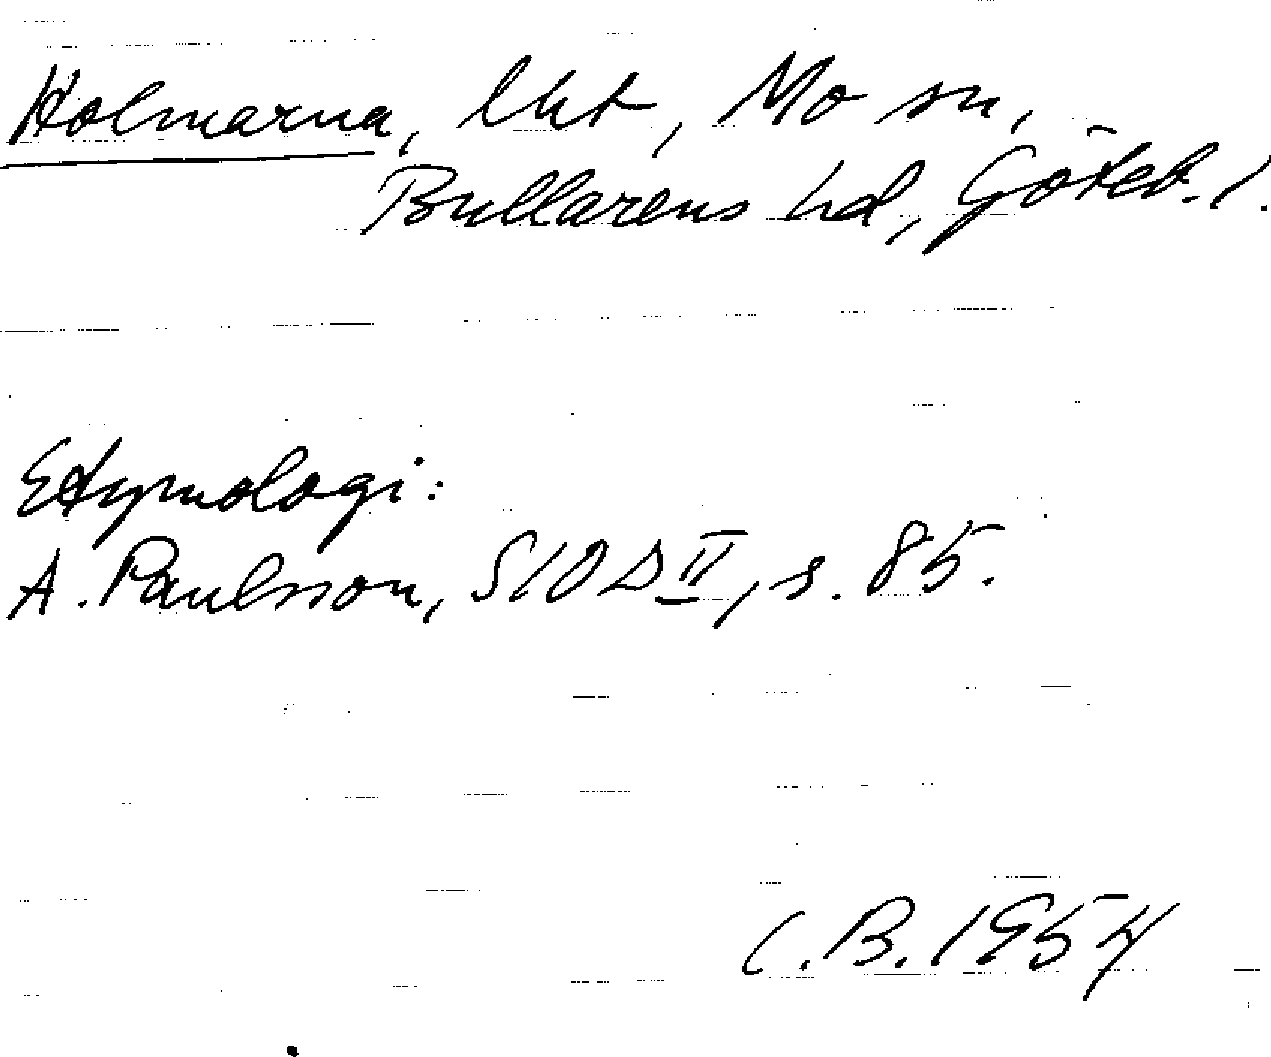 Holmarna, lht, Mo sn,
Bullarens hd, Göteb. l.
Etymologi:
A. Paulsson, SIOD II, s. 85.
C.B. 1954